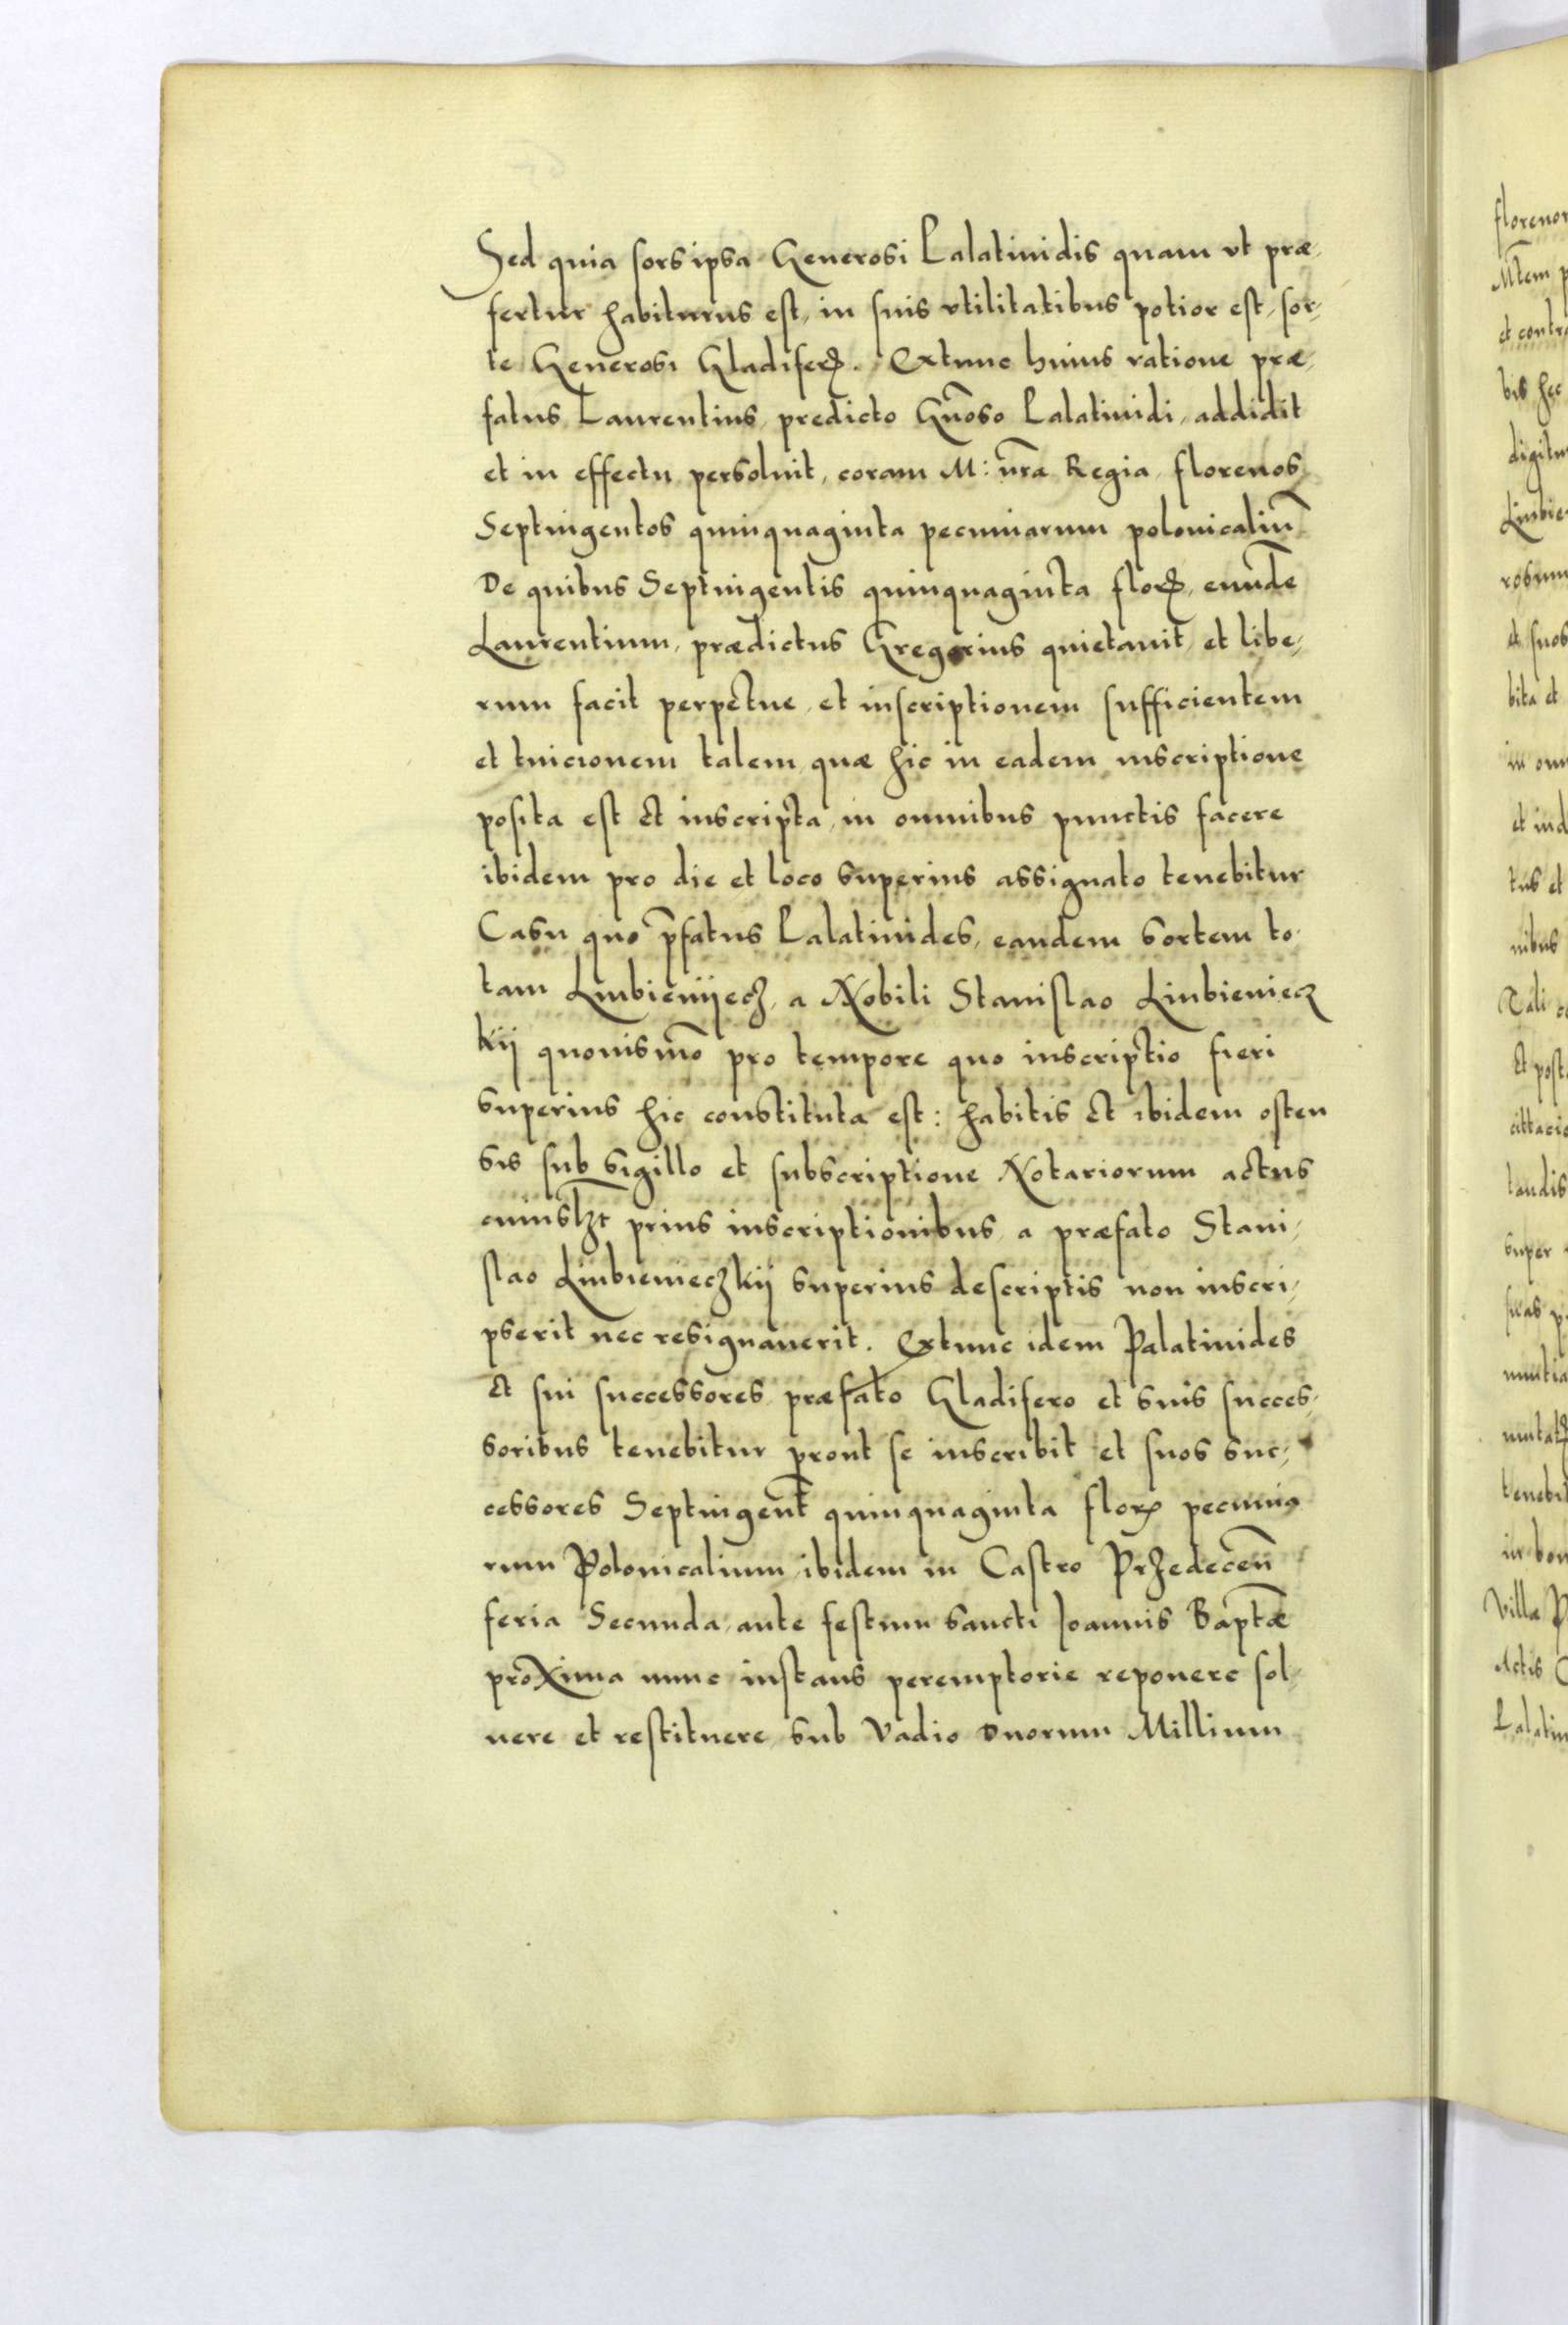 Sed quia sors ipsa Generosi Palatinidis quam vt præ,
fertur habiturus est, in suis vtilitatibus potior est, sor,
te Generosi Gladiferꝝ. Extunc huius ratione præ,
fatus Laurentius predicto Gñoso Palatinidi, addidit
et in effectu persoluit, coram M: nr̃a Regia florenos
Septingentos quinquaginta pecuniarum polonicaliũ
De quibus Septingentis quinquaginta florꝝ, eund̃e
Laurentium, prædictus Gregorius quietauit, et libe,
rum facit perpetue, et inscriptionem sufficientem
et tuicionem talem quæ hic in eadem inscriptione
posita est et inscripta, in omnibus punctis facere
ibidem pro die et loco superius assignato tenebitur
Casu quo p̃fatus Palatinides, eandem sortem to,
tam Lubienijecz, a Nobili Stanislao Lubieniecz
kij quouismõ pro tempore quo inscriptio fieri
superius hic constituta est: habitis et ibidem osten
sis sub sigillo et subscriptione Notariorum actus
cuiuslꝫt prius inscriptionibus a præfato Stani,
slao Lubienieczkij superius descriptis non inscri,
pserit nec resignauerit. Extunc idem Palatinides
et sui successores præfato Gladifero et suis succes,
soribus tenebitur prout se inscribit et suos suc,
cessores Septingent̃ quinquaginta florꝝ pecunia
rum Polonicalium, ibidem in Castro Przedeceñ
feria Secunda, ante festum sancti Ioannis Bapt̃æ
proxima nunc instans peremptorie reponere sol,
uere et restituere, sub Vadio Duorum Millium
floreno
Mtem
et contr
bis hec
digitu
Lubie
et suos
bita et
in om
et ind
tus et
nibus
Tali
Et post
landis
super
tenebi
in bon
Villæ P
Actis
Palatin